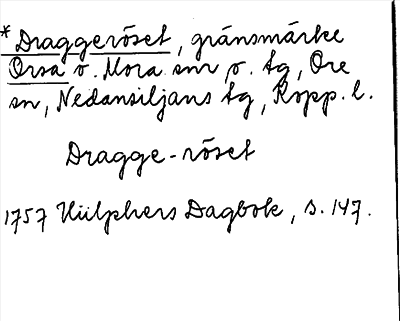 *Draggeröset, gränsmärke
Orsa o. Mora snr o. tg, Ore
sn, Nedansiljans tg, Kopp. l.
Dragge-röset
1757 Hülphers Dagbok, s. 147.